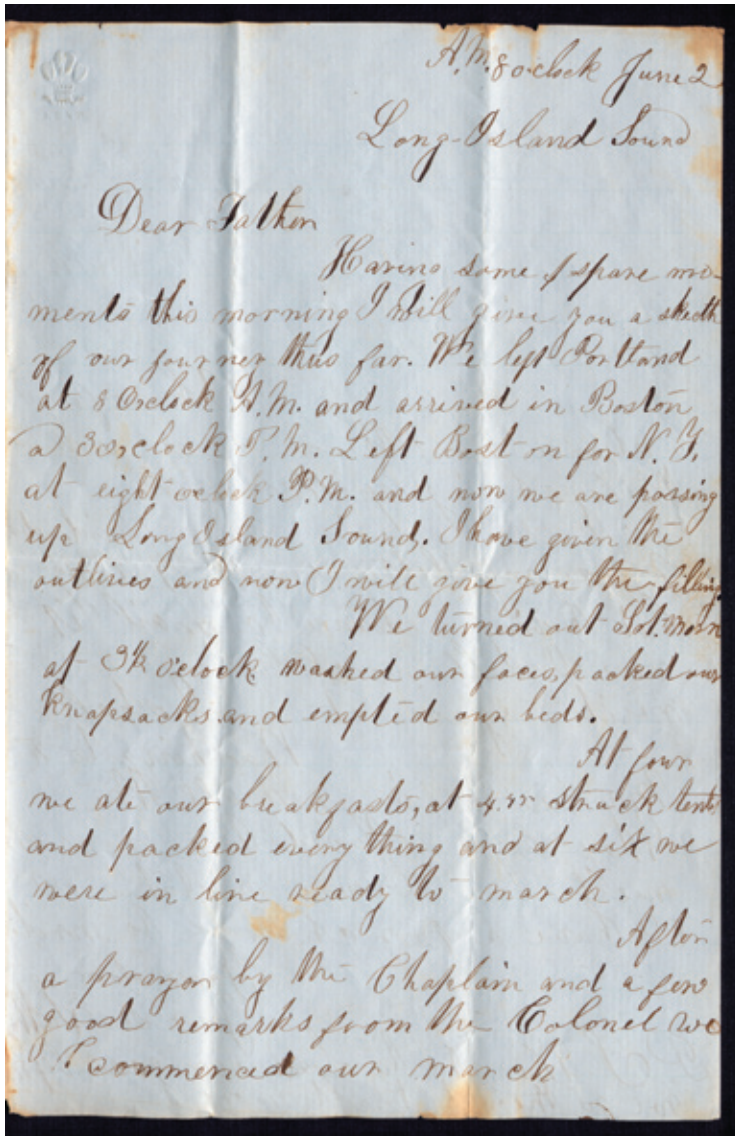 A.M. 8 oclock June 2
Long-Island Sound
Dear Father
Having some spare mo-
ments this morning I will give you a sketch
of our journey thus far. We left Portland
at 8 Oclock A.M. and arrived in Boston
a 3 oclock P.M. Left Boston for N.Y.
at eight oclock P.M. and now we are passing
up Long Island Sound. I have given the
outlines and now I will give you the filling
We turned out Sat. morn
at o'clock washed our faces, packed our
knapsacks and emptied our beds.
At four
we ate our breakfasts, at struck tents
and packed every thing and at six we
were in line ready to march.
After
a prayer by the Chaplain and a few
good remarks from the Colonel we
commenced our march